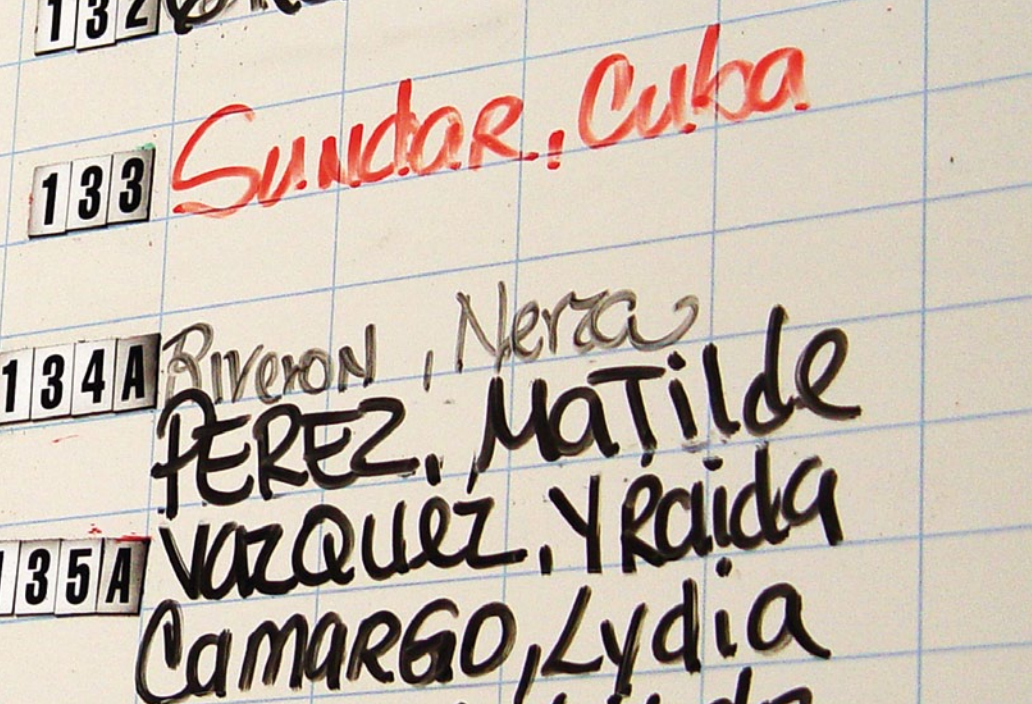 132
133 Sundar, Cuba
134A Riveron, Nerza
PEREZ, Matilde
35A Vazquez, Yraida
Camargo, Lydia